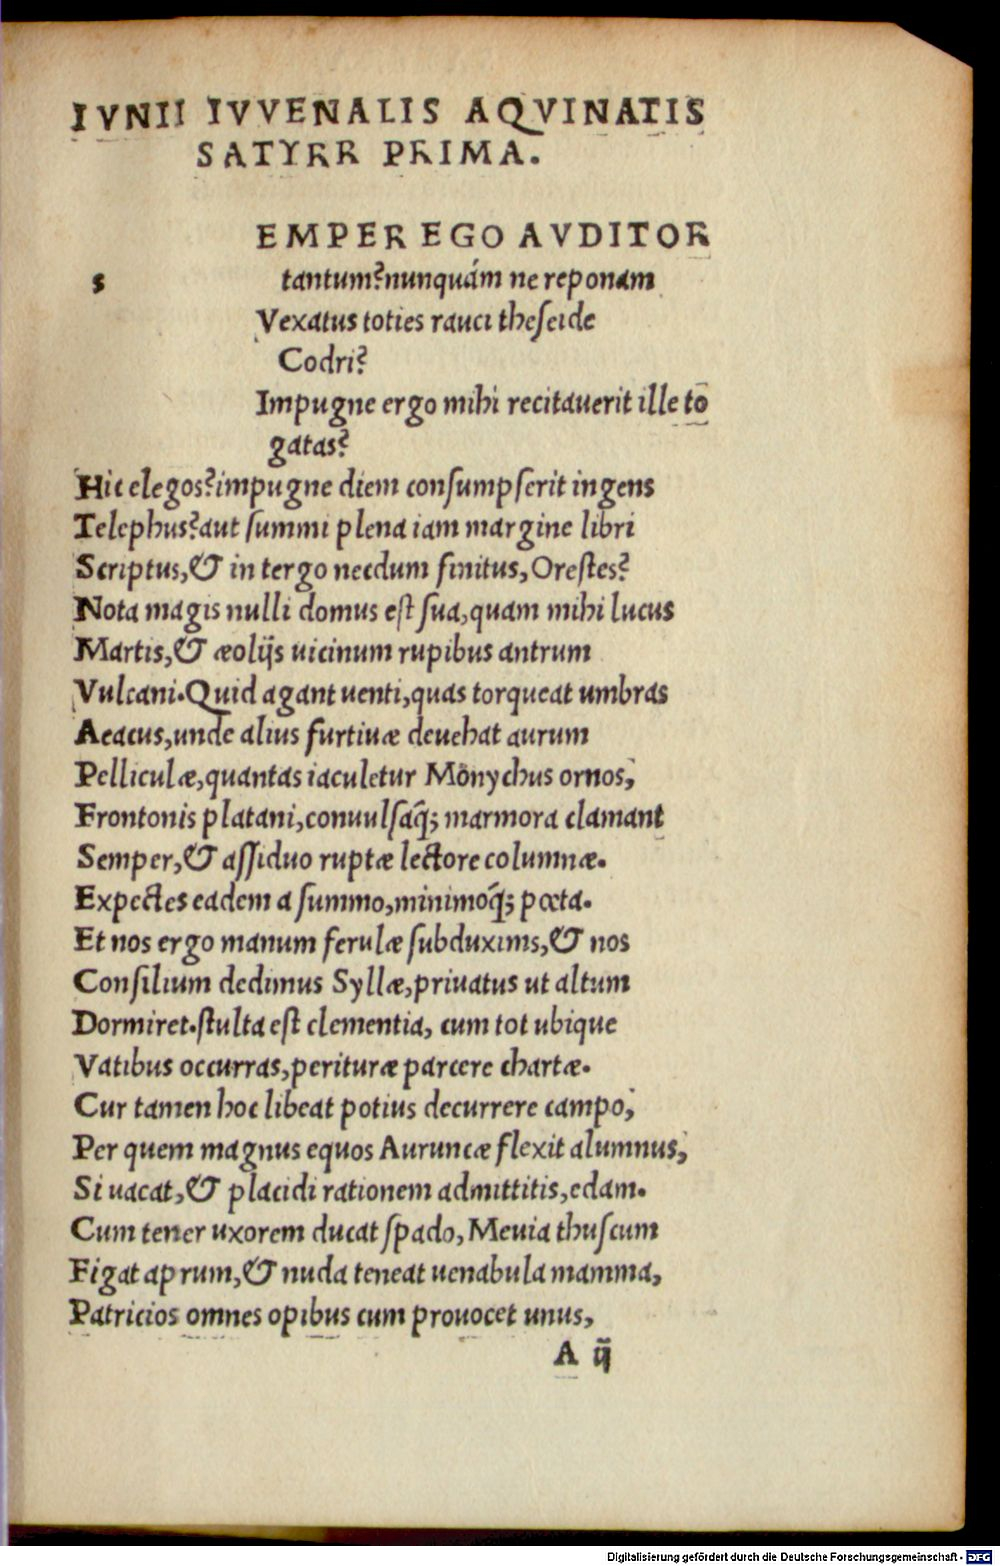 IVNII IVVENALIS AQVINATIS
SATYRR PRIMA.
EMPER EGO AVDITOR
s tantum?nunquám ne reponam
Vexatus toties rauci theſeide
Codri?
Impugne ergo mihi recitauerit ille tō
gatas?
Hic elegos?impugne diem conſumpſerit ingens
Telephus?aut ſummi plena iam margine libri
Scriptus,& in tergo necdum finitus,Oreſtes?
Nota magis nulli domus eſt ſua,quam mihi lucus
Martis,& æolijs uicinum rupibus antrum
Vulcani.Quid agant uenti,quas torqueat umbras
Aeacus,unde alius furtiuæ deuehat aurum
Pelliculæ,quantas iaculetur Mōnychus ornos;
Frontonis platani,conuulſaq̃; marmora clamant
Semper,& aſſiduo ruptæ lectore columnæ.
Expectes eadem a ſummo,minimoq̃; poeta.
Et nos ergo manum ferulæ ſubduxims,& nos
Conſilium dedimus Syllæ,priuatus ut altum
Dormiret.ſtulta eſt clementia, cum tot ubique
Vatibus occurras,perituræ parcere chartæ.
Cur tamen hoc libeat potius decurrere campo;
Per quem magnus equos Auruncæ flexit alumnus;
Si uacat,& placidi rationem admittitis,edam.
Cum tener uxorem ducat ſpado, Meuia thuſcum
Figat aprum,& nuda teneat uenabula mamma,
Patricios omnes opibus cum prouocet unus,
A ij
Digitalisierung gefördert durch die Deutsche Forschungsgemeinschaft - DFG